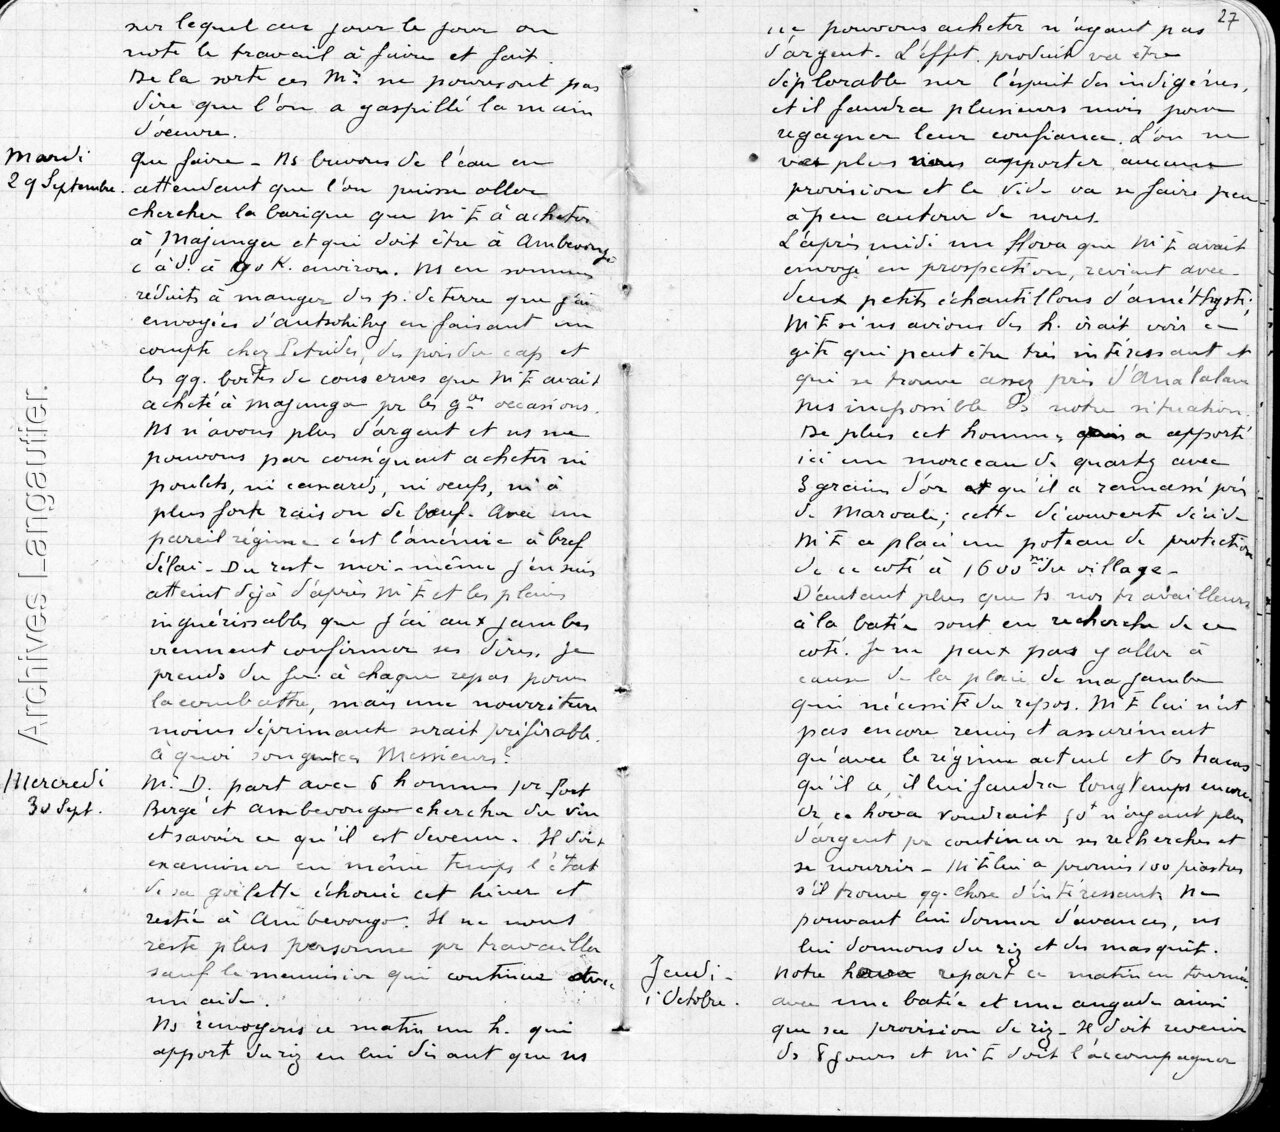 sur lequel au jour le jour on
note le travail à faire et fait.
De la sorte ces Mrs ne pourront pas
dire que l'on a gaspillé la main
d'oeuvre.
Mardi
29 Septembre.
Que faire - Ns buvons de l'eau en
attendant que l'on puisse aller
chercher la barique que Mr E à acheter
à Majunga et qui doit être à Ambevongo
c à d. à 90 K. environ. Ns en sommes
réduits à manger des p. de terre que j'ai
envoyées d'Antsohihy en faisant un
compte chez Petrides, des pois du cap et
les qq. boîtes de conserves que Mr E avait
acheté à Majunga pr les gdes occasions.
Ns n'avons plus d'argent et ns ne
pouvons par conséquent acheter ni
poulets, ni canards, ni oeufs, ni à
plus forte raison de boeuf. Avec un
pareil régime c'est l'anémie à bref
délai - Du reste moi-même j'en suis
atteint déjà d'après Mr E et les plaies
inguérissables que j'ai aux jambes
viennent confirmer ses dires. Je
prends du fer à chaque repas pour
la combattre, mais une nourriture
moins déprimante serait préférable.
à quoi songent ces Messieurs?
Mercredi
30 Sept.
M. D. part avec 6 hommes pr Port
Bergé et Ambevongo chercher du vin
et savoir ce qu'il est devenu. Il doit
examiner en même temps l'état
de sa goëlette échouée cet hiver et
restée à Ambevongo. Il ne nous
reste plus personne pr travailler
sauf le menuisier qui continue avec
un aide.
Ns renvoyons ce matin un h. qui
apporte du riz en lui disant que ns
27
ne pouvons acheter n'ayant pas
d'argent. L'effet produit va être
déplorable sur l'esprit des indigènes,
et il faudra plusieurs mois pour
regagner leur confiance. L'on ne
va plus nous apporter aucune
provision et le vide va se faire peu
à peu autour de nous.
L'après midi un Hova que Mr E avait
envoyé en prospection, revient avec
deux petits échantillons d'améthyste;
Mr E si ns avions des h. irait voir ce
gîte qui peut être très intéressant et
qui se trouve assez près d'Analalave
mis impossible ds notre situation.
De plus cet homme a apporté
ici un morceau de quartz avec
3 grains d'or qu'il a ramassé près
de Marovale; cette découverte décide
Mr E a placé un poteau de protection
de ce coté à 1600m du village -
D'autant plus que ts nos travailleurs
à la batée sont en recherche de ce
coté. Je ne peux pas y aller à
cause de la plaie de ma jambe
qui nécessite du repos. Mr E lui n'est
pas encore remis et assurément
qu'avec le régime actuel et les tracas
qu'il a, il lui faudra longtemps encore.
Or, ce hova voudrait 50f n'ayant plus
d'argent pr continuer ses recherches et
se nourrir - Mr E lui a promis 100 piastres
s'il trouve qq. chose d'intéressant. Ne
pouvant lui donner d'avances, ns
lui donnons du riz et des masquit.
Jeudi -
1 Octobre.
Notre hova repart ce matin en tournée
avec une batée et une angade ainsi
que sa provision de riz - Il doit revenir
ds 8 jours et Mr E doit l'accompagner
Archives Langautier.